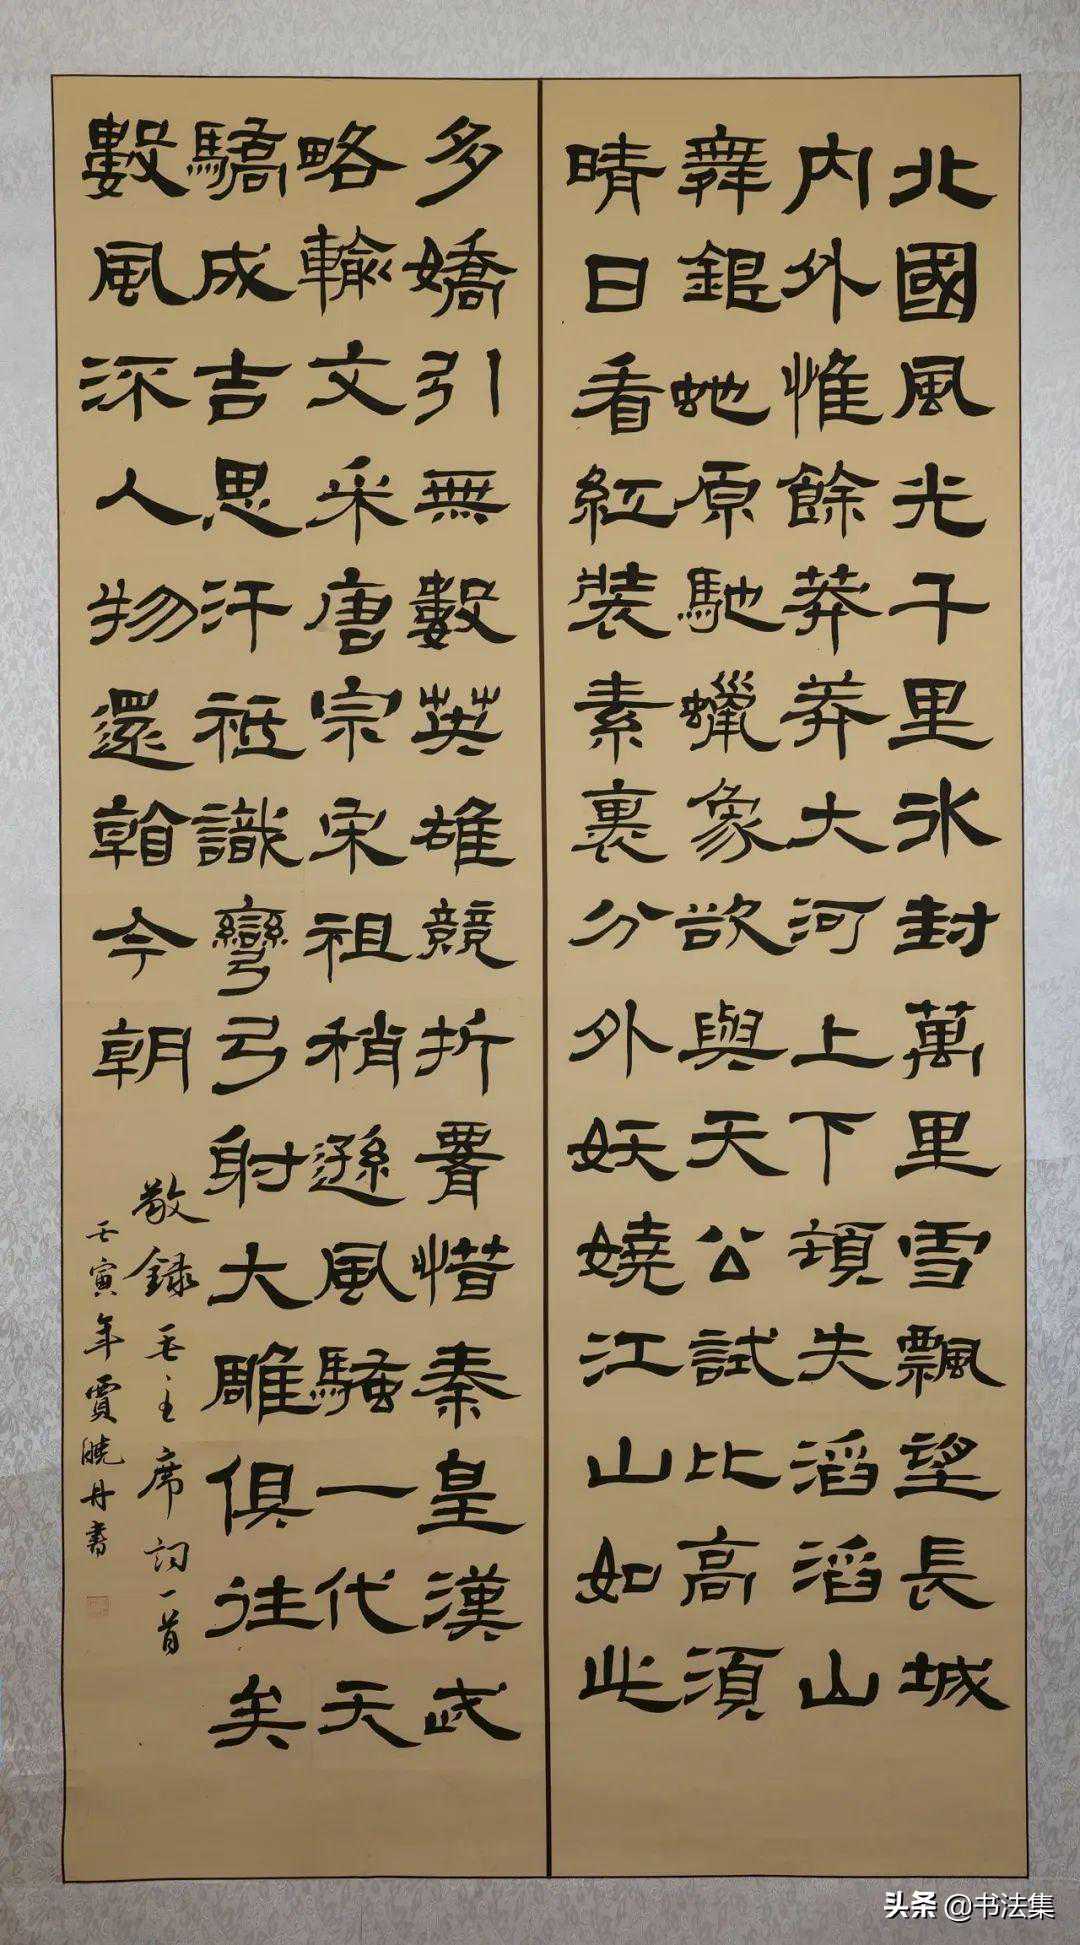 北國風光千里冰封萬里雪飄望長城
内外惟餘莽莽大河上下頓失滔滔山
舞銀蛇原馳蠟象欲與天公試比高須
晴日看紅裝素裹分外妖嬈江山如此
多嬌引無數英雄競折腰惜秦皇漢武
略輸文采唐宗宋祖稍遜風騷一代天
驕成吉思汗祗識彎弓射大雕俱往矣
數風流人物還看今朝
敬錄毛主席詞一首
壬寅年賈曉丹書
头条 @书法集